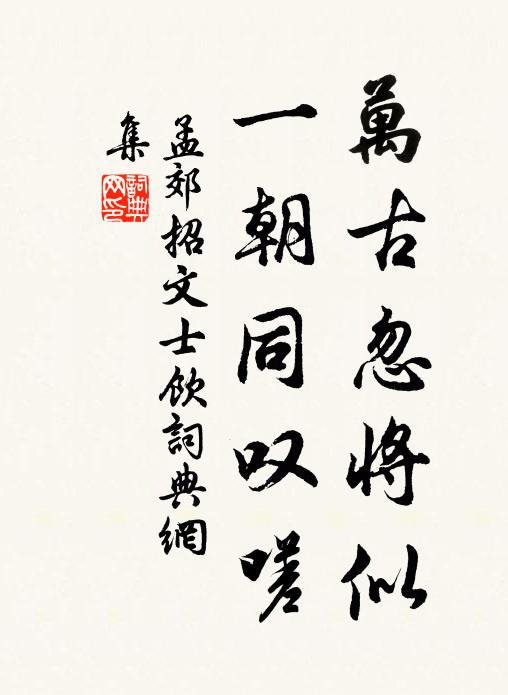 萬古忽將似
一朝同叹嗟
孟郊招文士飲詞典網
集
詞典
网印